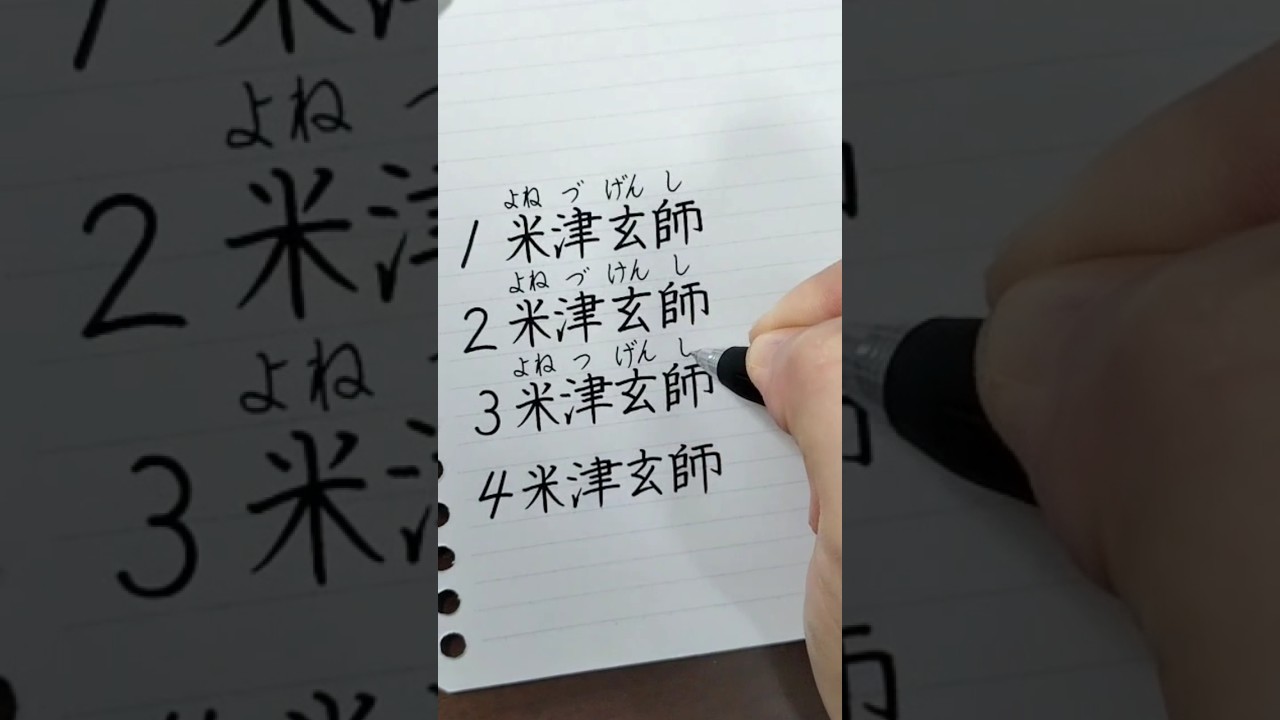 よね づ げん し
1 米津玄師
よね づ けん し
2 米津玄師
よね つ げん し
3 米津玄師
4 米津玄師